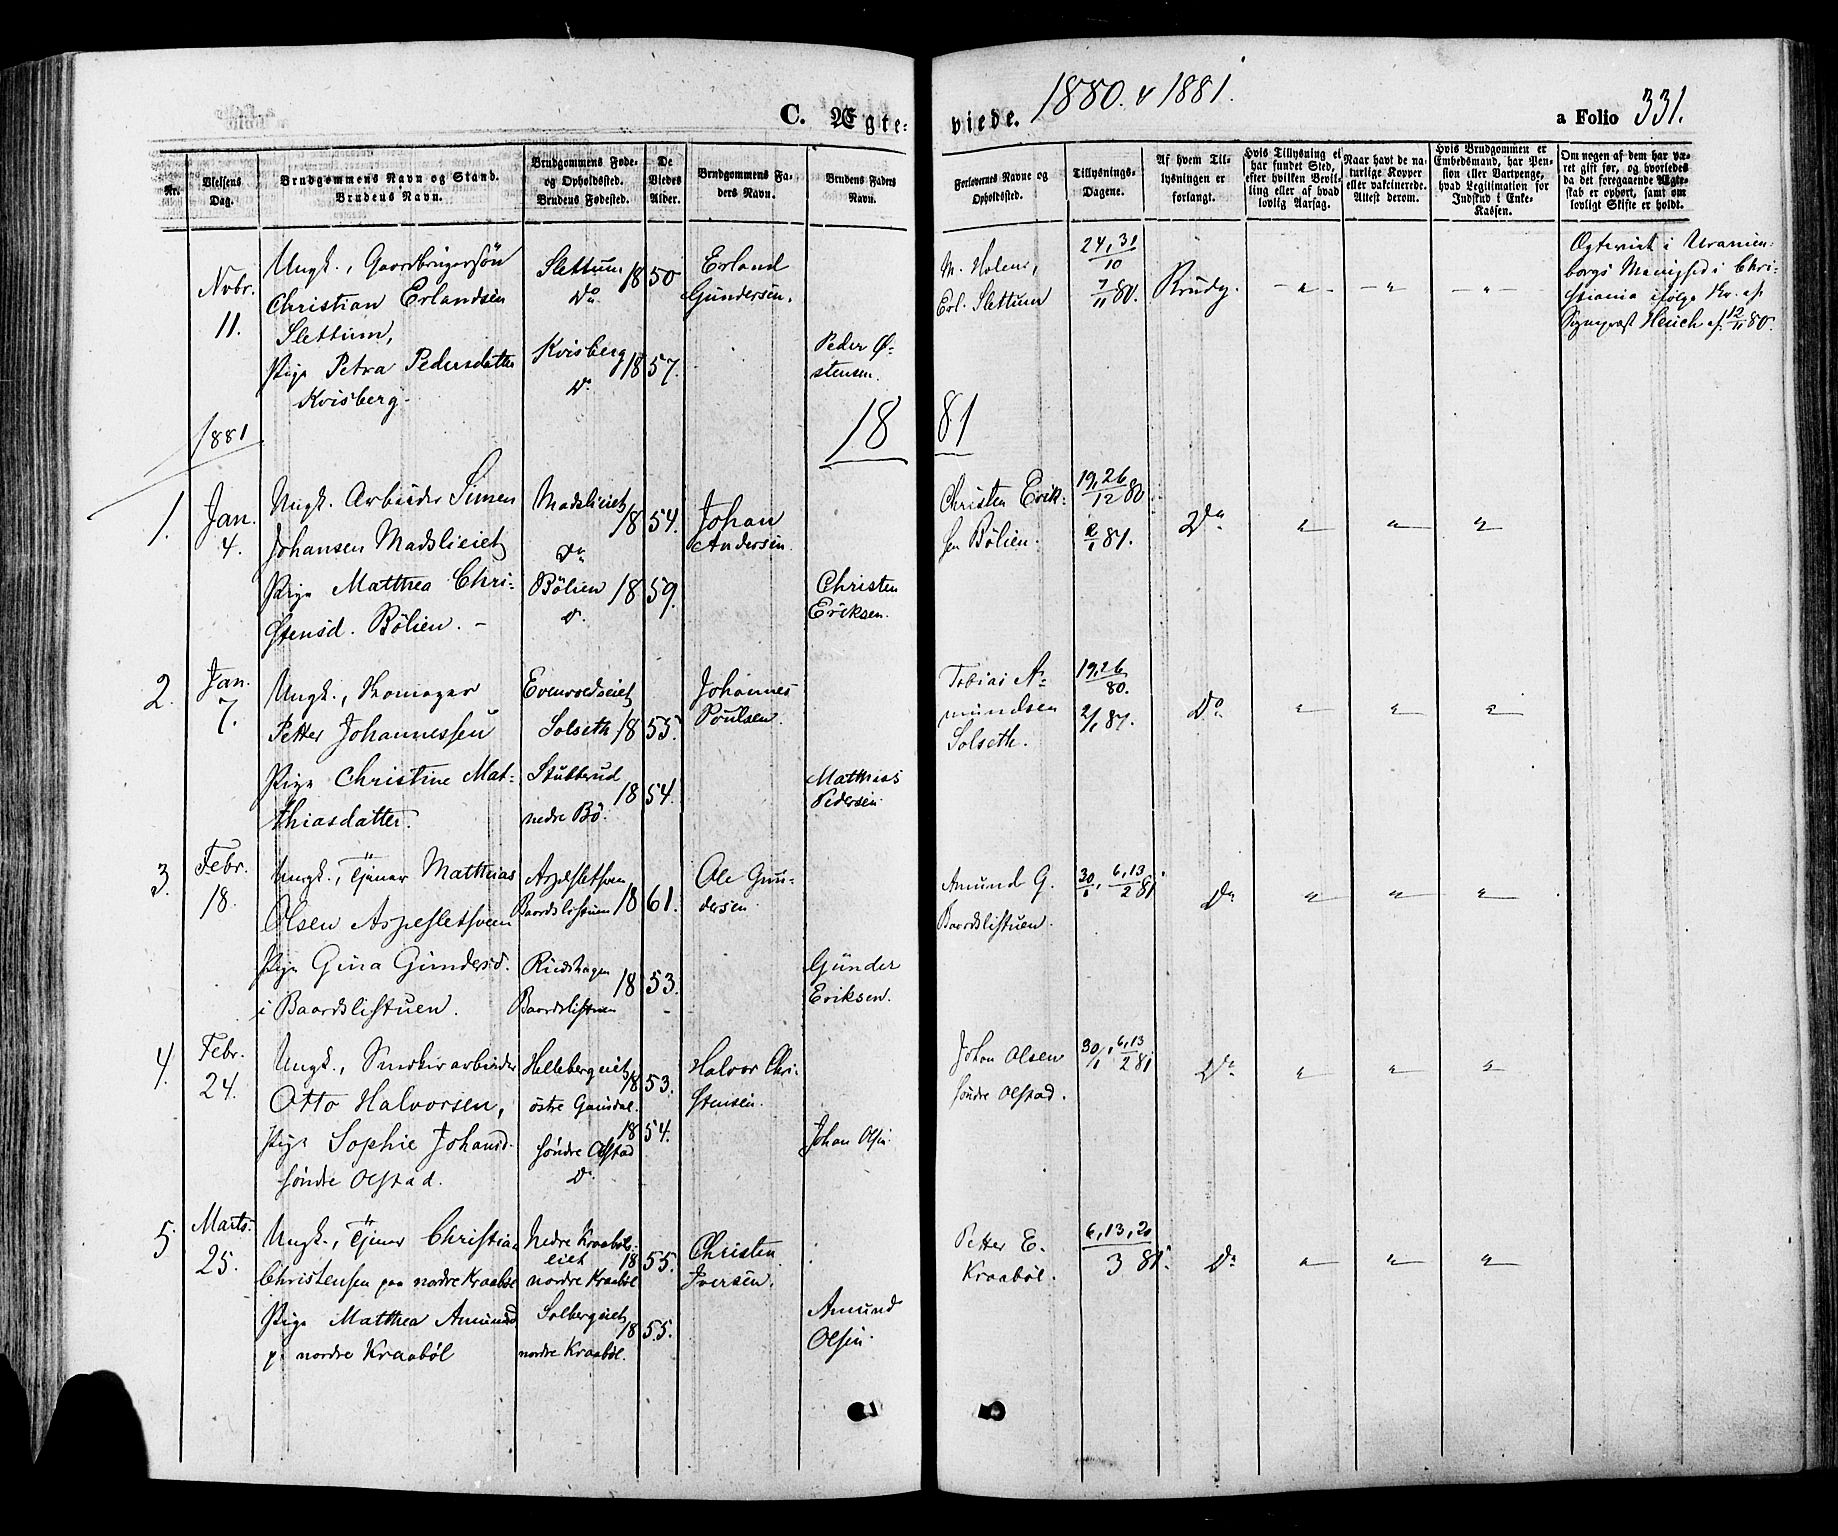 C. Ægte-
viede. 1880. & 1881.
a Folio 331.
Nr.
Vielsens
Dag.
Brudgommens Navn og Stand.
Brudens Navn.
Brudgommens Føde-
og Opholdssted.
Brudens Fødested.
De
Viedes
Alder.
Brudgommens Fa-
ders Navn.
Brudens Faders
Navn.
Forlovernes Navne og
Opholdssted.
Tillysnings-
Dagene.
Af hvem Til-
lysningen er
forlangt.
Hvis Tillysning ei
har fundet Sted,
efter hvilken Bevil-
ling eller af hvad
lovlig Aarsag.
Naar havt de na-
turlige Kopper
eller vakcinerede.
Attest derom.
Hvis Brudgommen er
Embedsmand, har Pen-
sion eller Vartpenge,
hvad Legitimation for
Indskud i Enke-
Kassen.
Om nogen af dem har væ-
ret gift før, og hvorledes
da det foregaaende Ægte-
skab er ophørt, samt om
lovligt Skifte er holdt.
Novbr.
11.
Ungk., Gaardbrugersøn
Christian Erlandsen
Slettum,
Pige Petra Pedersdatter
Kvisberg
Slettum
Do
Kvisberg
Do
1850
1857.
Erland
Gundersen.
Peder Ø-
stensen.
M. Holens,
Erl. Slettum
24, 31
10
7
11 80.
Brudg.
- " -
- " -
- " -
Ægteviet i Uranien-
borgs Menighed i Chri-
stiania ifølge Br. af
Sognepræst Heuch af 12/11 80.
1881
18 81
1.
Jan.
4.
Ungk. Arbeider Simen
Johansen Madslieiet
Pige Matthea Chri-
stensd. Bölien. -
Madslieiet
Do
Bölien
Do
1854.
1859.
Johan
Andersen.
Christen
Eriksen.
Christen Erik-
sen Bölien.
19, 26
12 80
2
1 81.
Do
"
"
"
2.
Jan.
7.
Ungk., Skomager
Petter Johannessen
Pige Christine Mat-
thiasdatter.
Evensvedseiet
Solseth
Stubberud
nedre Bö.
1855.
1854.
Johannes
Poulsen.
Matthias
Pedersen.
Tobias A-
mundsen
Solseth.
19, 26
80.
2/1 81.
Do
"
"
"
3.
Febr.
18.
Ungk., Tjener Matthias
Olsen Aspesletsveen
Pige Gina Gundersd.
i Baardslistuen.
Aspesletsveen
Baardslistuen
Rudshagen
Baardslistuen
1861.
1853.
Ole Gun-
dersen.
Günder
Eriksen.
Amund G.
Baardslistuen.
30
1, 6, 13
2 81.
Do
"
"
"
4.
Febr.
24.
Ungk., Snedkerarbeider
Otto Halvorsen,
Pige Sophie Johansd.
söndre Olstad.
Hellebergeiet
östre Gausdal.
söndre Olstad
Do
1853.
1854.
Halvor Chri-
stensen.
Johan Olsen.
Johan Olsen
söndre Olstad.
30/1, 6, 13
2 81
Do
"
"
"
5.
Marts.
25.
Ungk., Tjener Christian
Christensen paa nordre Kraaböl
Pige Matthea Amundsd
p. nordre Kraaböl
Nedre Kraaböls-
eiet
nordre Kraaböl
Solbergeiet
nordre Kraaböl.
1855.
1855.
Christen
Iversen.
Amund
Olsen.
Petter E.
Kraaböl.
6, 13, 20
3 81.
Do
"
"
"